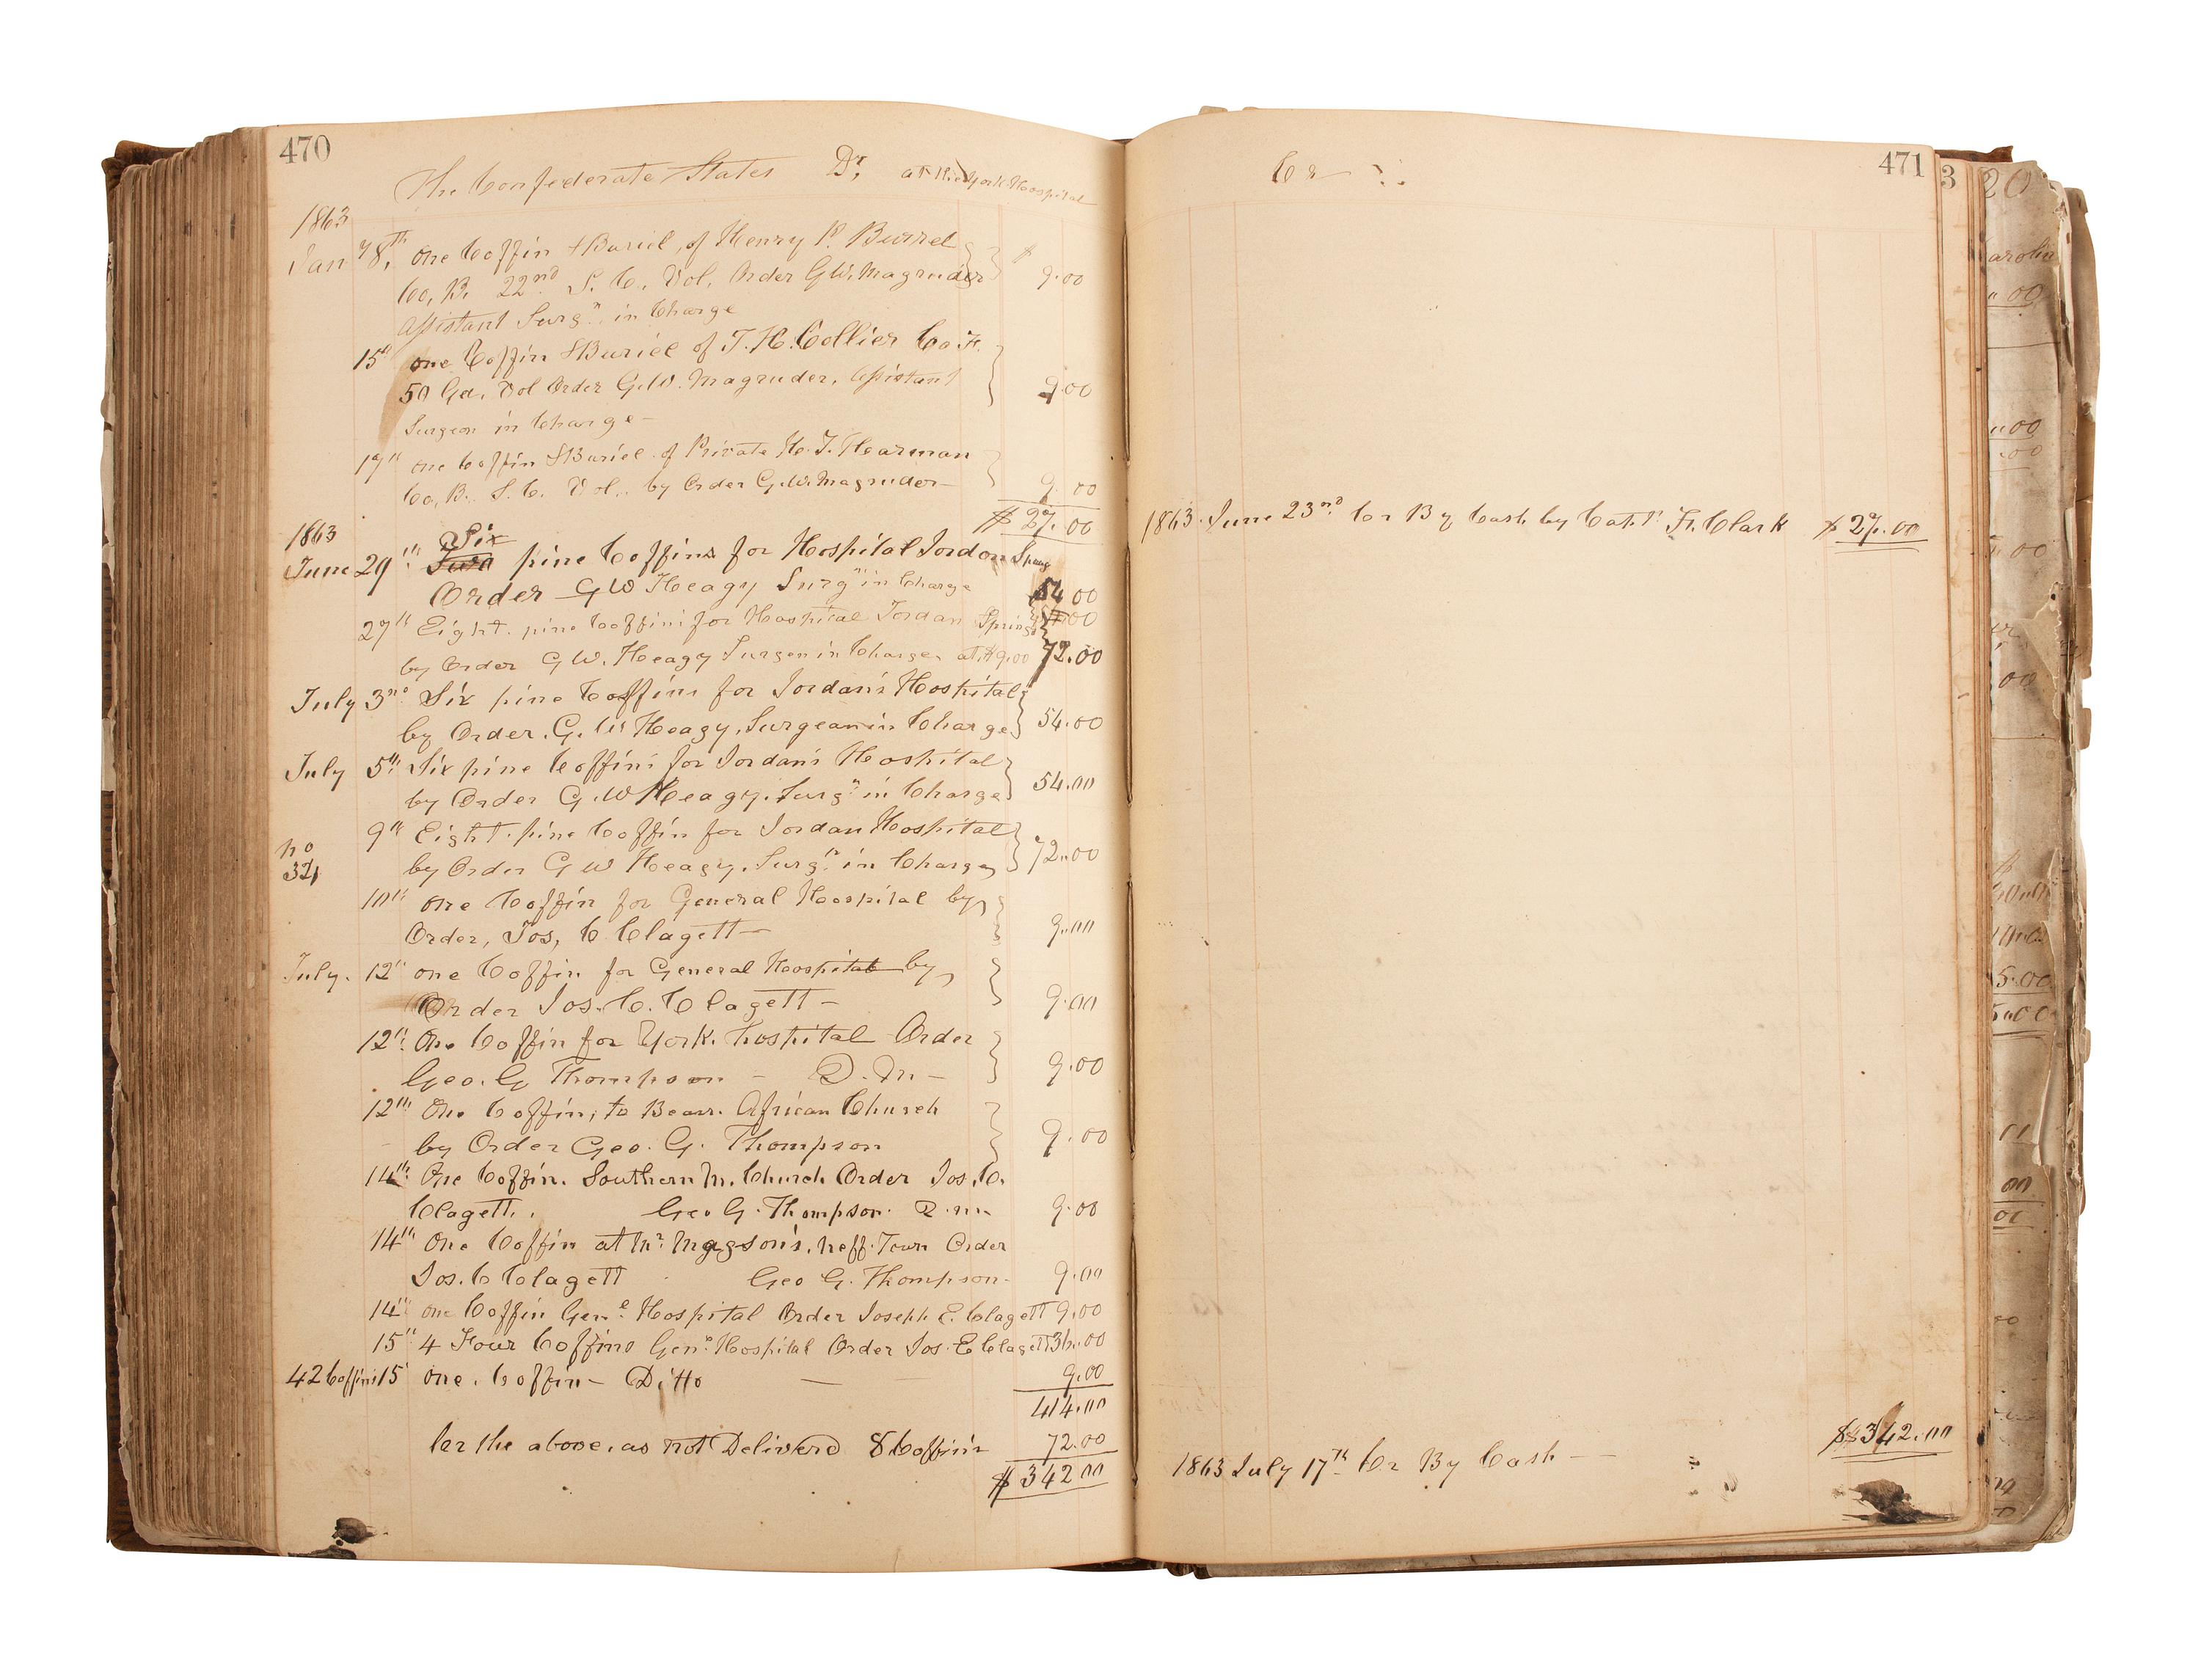 470
The Confederate States Dr, at the York Hospital
1863
Jan 8th, one Coffin & Buriel, of Henry P. Burrel
Co, B. 22nd S. C. Vol, Order G W. Magruder $ 9.00
Assistant Surgn in Charge
15 one Coffin & Buriel of T. H. Collier Co H.
50 Ga. Vol Order G. W. Magruder, Assistant 9.00
Surgeon in Charge –
17th one Coffin & Buriel of Private H. T. Hearman
Co, B. S. C. Vol.. by Order G. W. Magruder – 9.00
$ 27.00
1863 Six
June 29th Two pine Coffins for Hospital Jordon Spring
Order G W Heagy Surgn in Charge 54 00
27th Eight. pine Coffins for Hospital Jordan Springs
by Order G W. Heagy Surgen in Charge at $9.00 72.00
July 3rd Six pine Coffins for Jordan's Hospital
by Order. G. W Heagy, Surgean in Charge 54.00
July 5th Six pine Coffins for Jordan's Hospital
by Order G. W Heagy. Surgn in Charge 54.00
9th Eight. pine Coffin for Jordan Hospital
no 321 by Order G W Heagy, Surgn in Charge 72.00
10th one Coffin for General Hospital by
Order, Jos, C Clagett – 9.00
July. 12th one Coffin for General Hospital by
Order Jos. C. Clagett – 9.00
12th One Coffin for York. hospital Order
Geo. G Thompson – Q. M – 9.00
12th One Coffin, to Bear. African Church
by Order Geo. G. Thompson 9.00
14th One Coffin. Southern M. Church Order Jos, C.
Clagett. Geo G. Thompson Q. M. 9.00
14th One Coffin at Mr. Magson's, neff. Town Order
Jos. C Clagett Geo G. Thompson. 9.00
14th one Coffin Genl Hospital Order Joseph E. Clagett 9.00
15th 4 Four Coffins Genl Hospital Order Jos. E Clagett 36.00
42 Coffins 15 one. Coffin – Ditto 9.00
414.00
Cer the above, as not Deliverd 8 Coffin's 72.00
$ 342 00
471
Cr
1863. June 23rd Cr By Cash by Capt. H. Clark $ 27.00
1863 July 17th Cr By Cash – $342.00
3
20